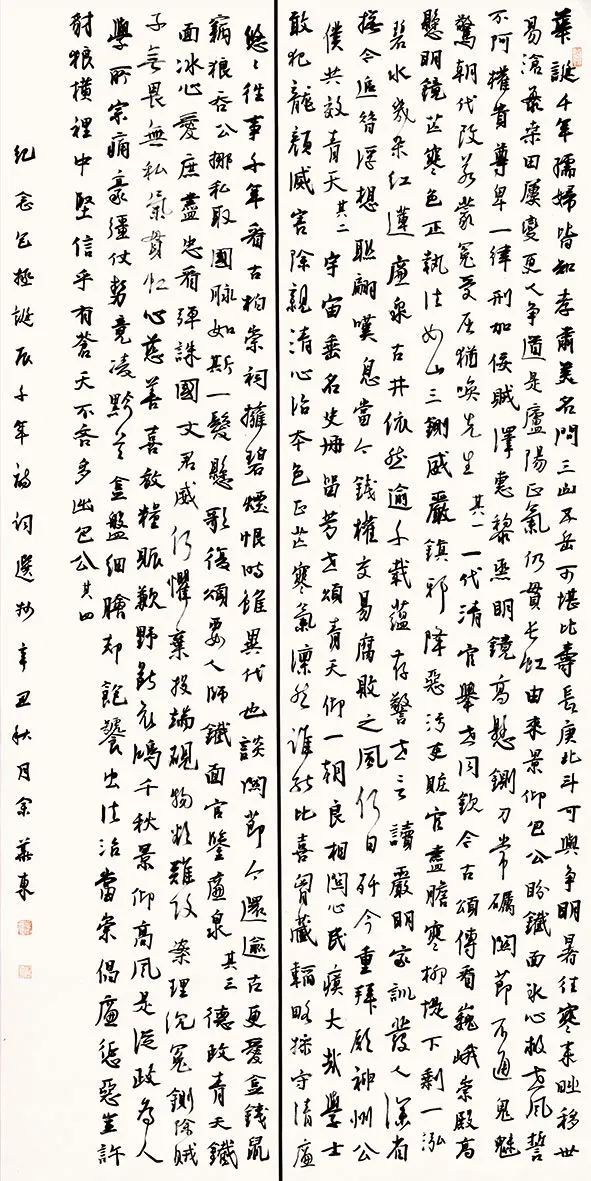 華誕千年孺婦皆知孝肅美名問三山五岳可堪比壽長庚北斗可與争明暑往寒来時移世
易滄桑田屢變更人争道是廬陽正氣仍貫長虹由来景仰包公盼鐵面冰心振世風誓
不阿權貴尊卑一律刑加佞賊澤惠黎烝明鏡高懸鍘刀常礪関節不通鬼魅
驚朝代改若蒙冤受屈猶喚先生其一一代清官舉世同欽今古頌傳看巍峨崇殿高
懸明鏡芒寒色正執法如山三鍘威嚴鎮邪降惡污吏贓官盡膽寒柳堤下剩一泓
碧水幾朵紅蓮廉泉古井依然逾千載蘊存警世言讀嚴明家訓發人深省
撫今追昔浮想聯翩嘆息當今錢權交易腐敗之風仍日矸今重拜願神州公
僕共效青天其二宇宙垂名史册留芳世頌青天仰一朝良相関心民瘼大哉學士
敢犯龍顔威害除親清心治本色正芒寒氣凛然誰能比喜胷藏韜略操守清廉
悠悠往事千年看古柏崇祠擁碧煙恨時雖異代也談関節今還逾古更愛金錢鼠
竊狼吞公挪私取國脉如斯一髮懸歌復頌要人師鐵面官鑒廉泉其三德政青天鐵
面冰心愛庶盡忠看彈誅國丈君威仍懼棄投端硯物欺難攻案理沉冤鍘除賊
子無畏無私氣貫虹心慈善喜放糧賑歉野新衣鴻千秋景仰高風是從政為人
學所宗痛豪彊仗勢竟凌黔首金盤細膾却飽饕虫法治當崇倡廉懲惡豈許
豺狼横裡中堅信乎有蒼天不吝多出包公其四
紀念包拯誕辰千年詩詞選抄辛丑秋月余華東